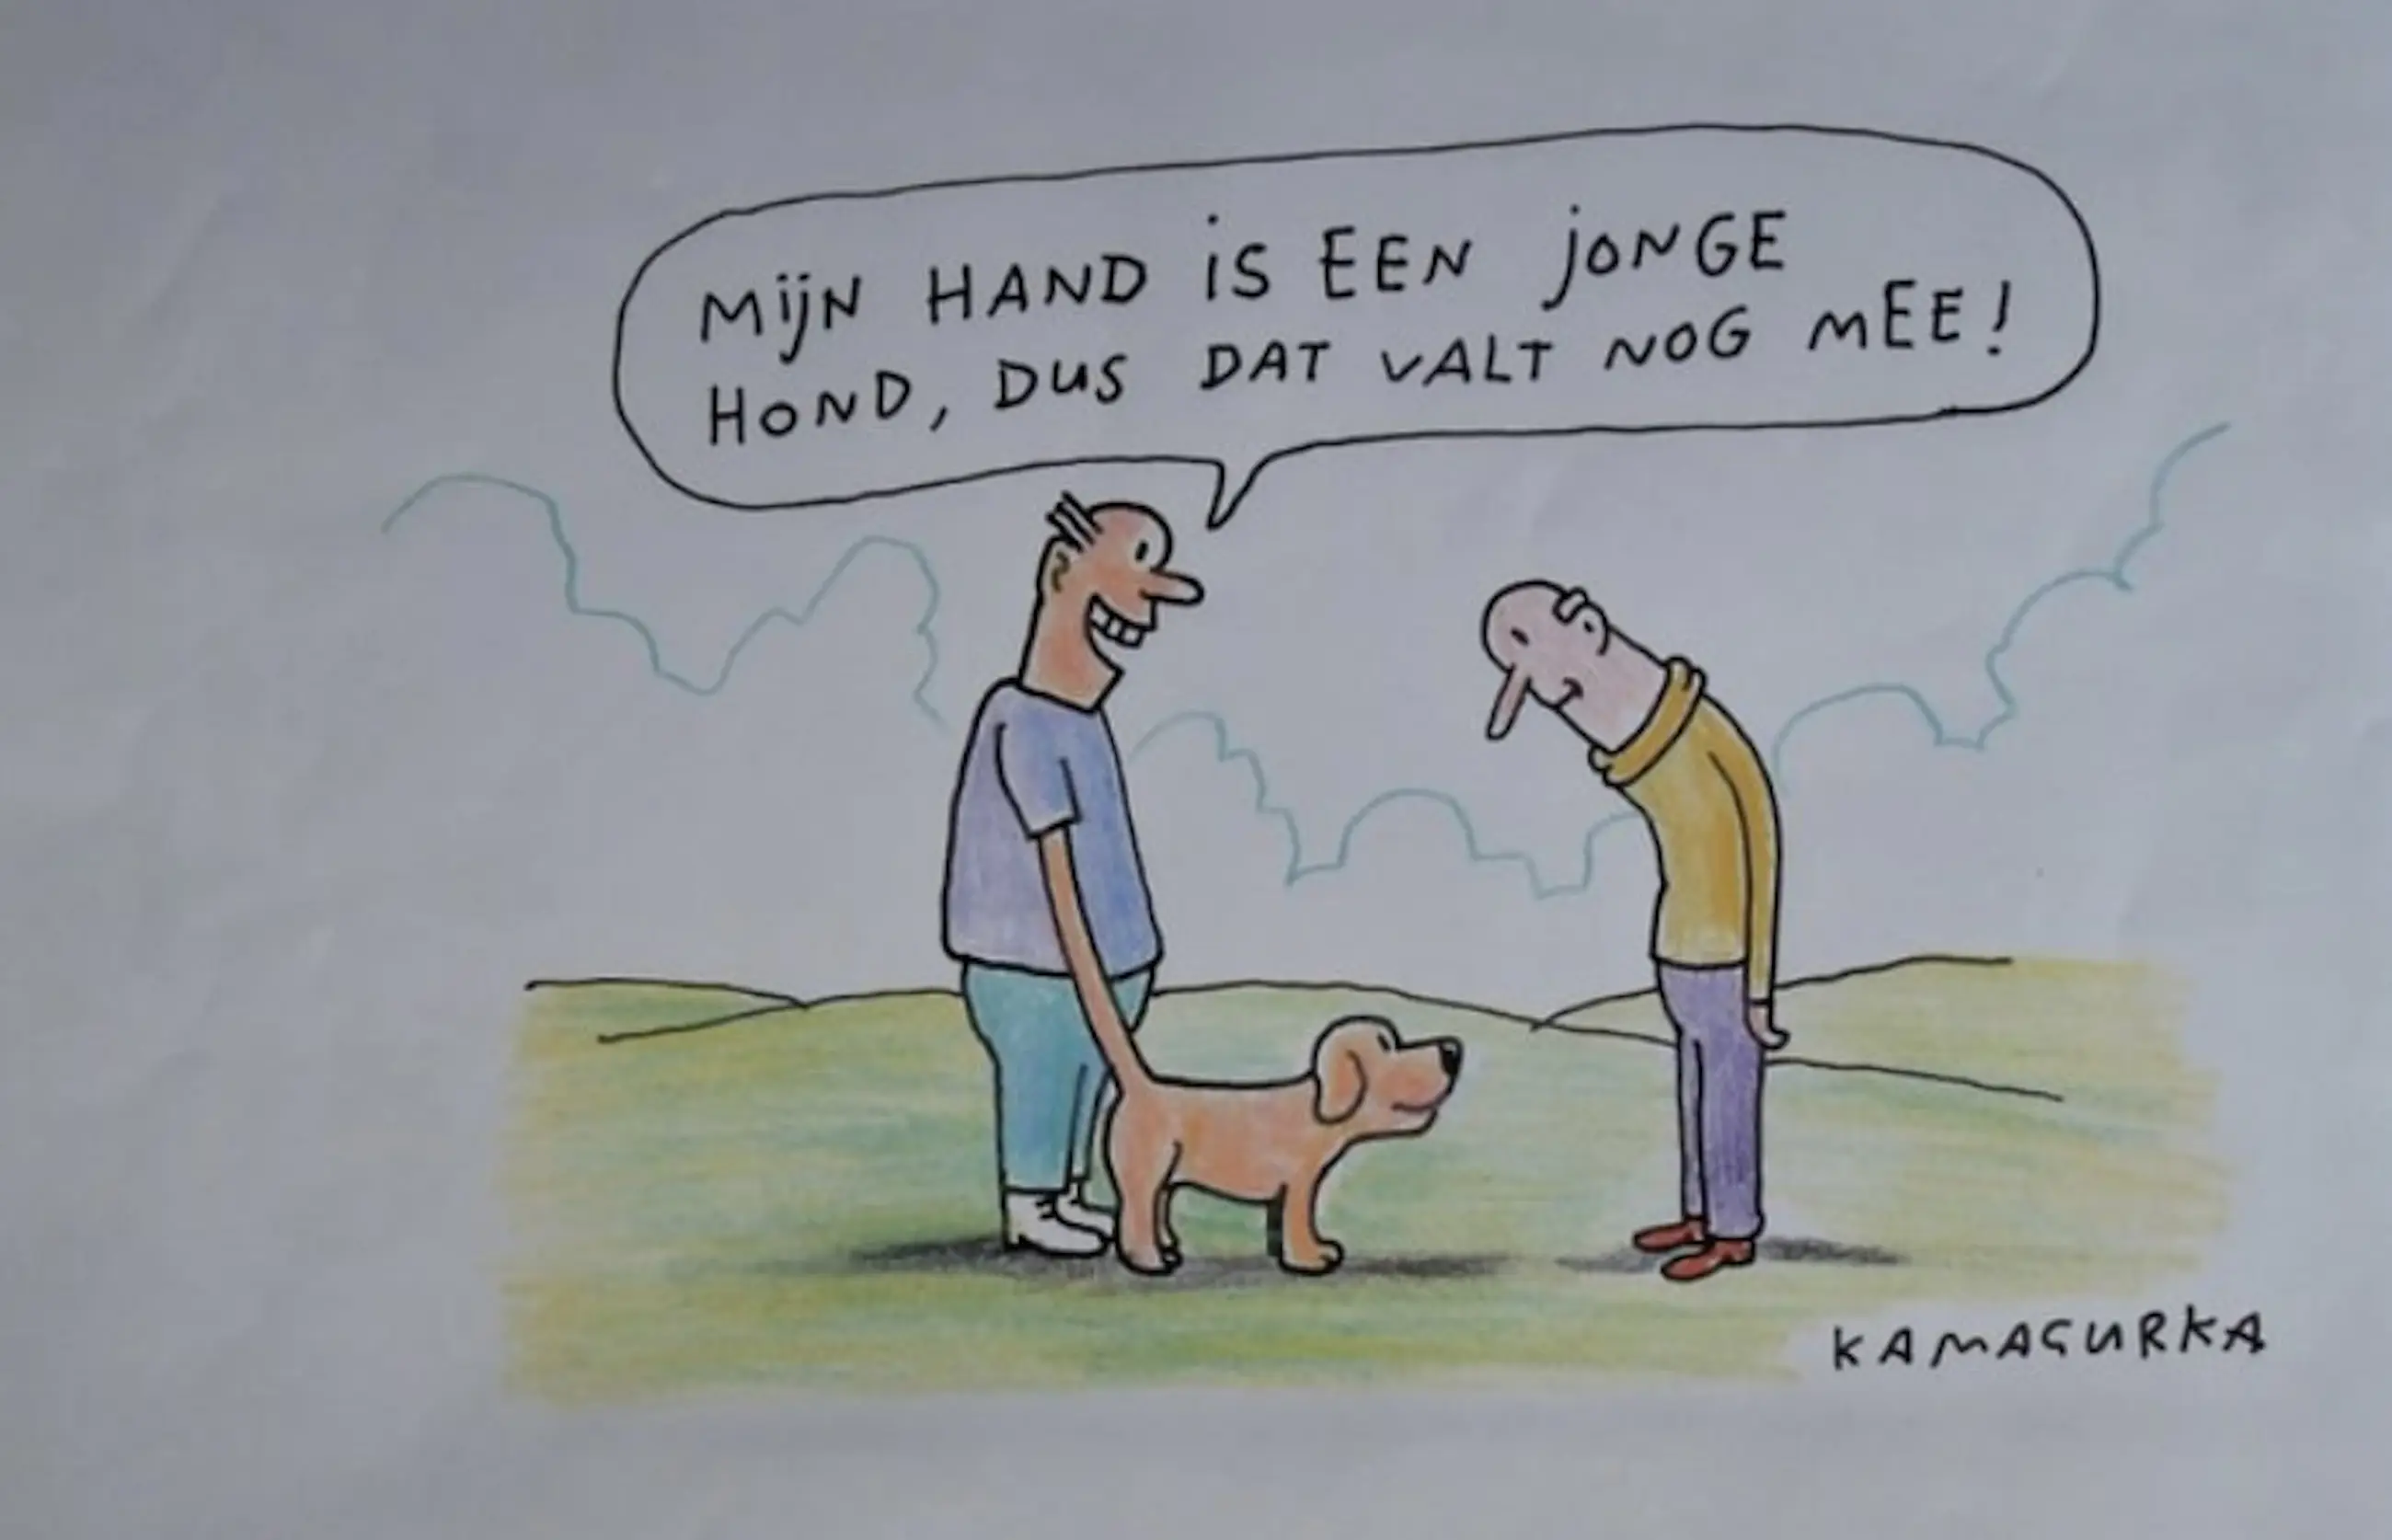 MijN HAND iS EEN jONGE
HOND, DUS DAT VALT NOG MEE!
KAMAGURKA